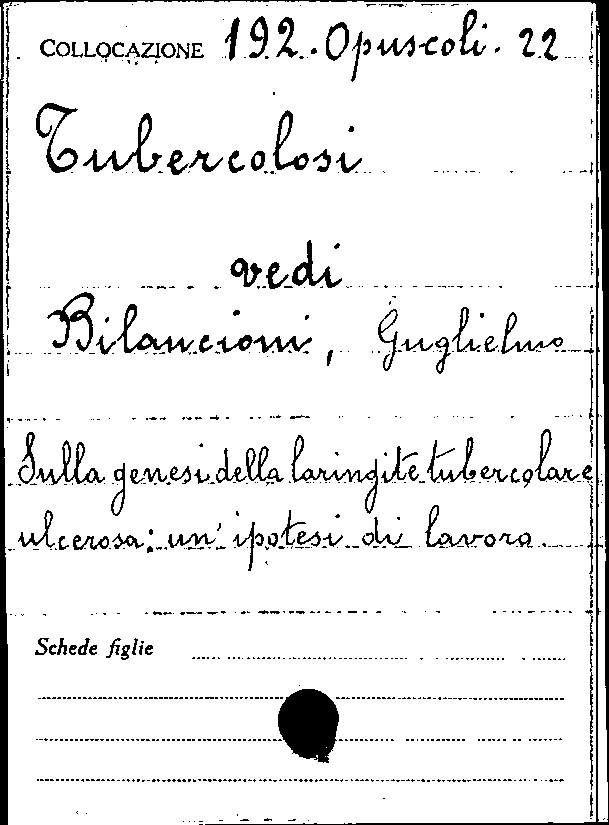 COLLOCAZIONE 192. Opuscoli. 22
Tubercolosi
vedi
Bilancioni, Guglielmo
Sulla genesi della laringite tubercolare
ulcerosa: un' ipotesi di lavoro.
Schede figlie